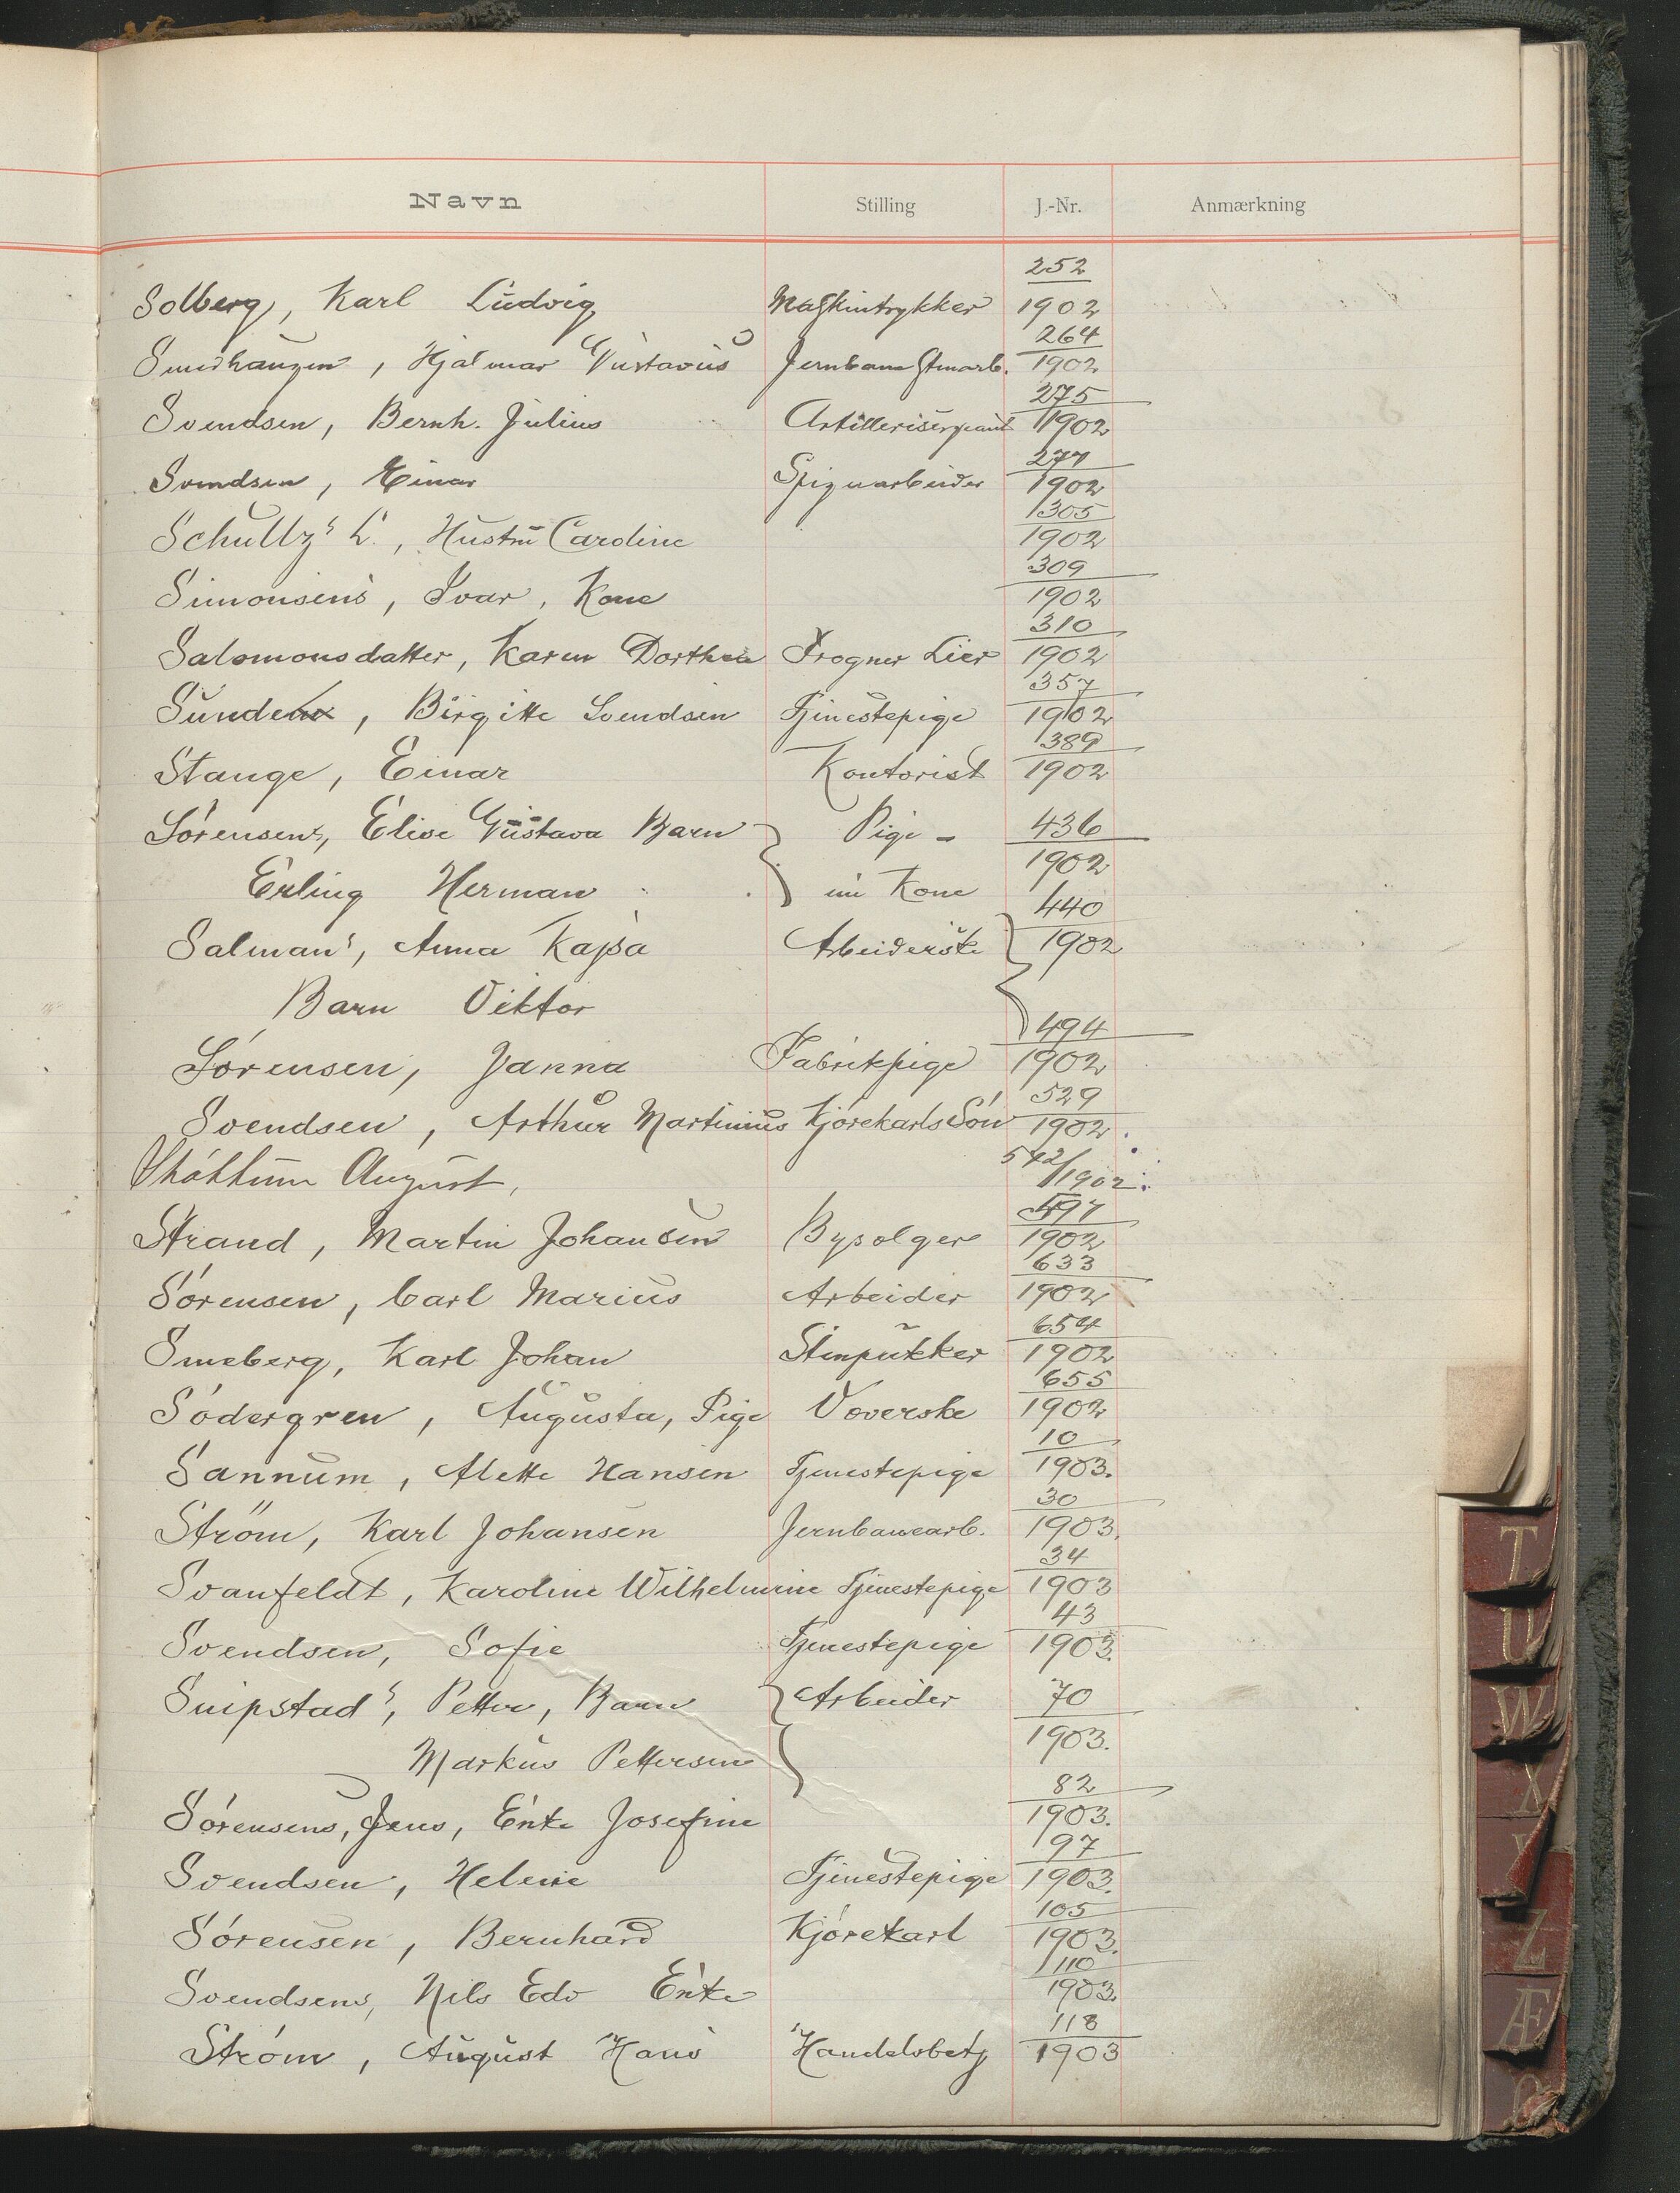 Navn Stilling J.-Nr. Anmærkning
252
Solberg, Karl Ludvig Maskintrykker 1902
264
Smidhaugen, Hjalmar Gustavus Jernbane 1902
275
Svendsen, Bernh. Julius Artillerisergeant 1902
277
Svendsen, Einar Spigerarbeider 1902
305
Schultz's L., Hustru Caroline 1902
309
Simonsens, Ivar, Kone 1902
310
Salomonsdatter, Karen Dorthea Frogner Lier 1902
357
Sunde, Birgitte Svendsen Tjenestepige 1902
389
Stange, Einar Kontorist 1902
Sörensens, Elise Gustava Barn Pige - 436
1902
Erling Herman nu Kone
440
Salman's, Anna Kajsa Arbeiderske 1902
Barn Viktor
494
Sörensen, Janna Fabrikpige 1902
529
Svendsen, Arthur Martinius Kjörekarls Sön 1902
542/1902
August,
597
Strand, Martin Johansen Bysolger 1902
633
Sörensen, Carl Marius Arbeider 1902
654
Smeberg, Karl Johan Stenpukker 1902
655
Södergren, Augusta, Pige Væverske 1902
10
Sannum, Alette Hansen Tjenestepige 1903.
30
Ström, Karl Johansen Jernbanearb. 1903.
34
Svanfeldt, Karoline Wilhelmine Tjenestepige 1903
43
Svendsen, Sofie Tjenestepige 1903.
Snipstad's, Petter, Barn Arbeider 70
1903.
Markus Pettersen
82
Sörensens, Jens, Enke Josefine 1903.
97
Svendsen, Helene Tjenestepige 1903.
105
Sörensen, Bernhard Kjörekarl 1903.
110
Svendsens, Nils Edv Enke 1903.
118
Ström, August Hans Handelsbetj 1903
T
U
W
X
Y
Z
Æ
Ö